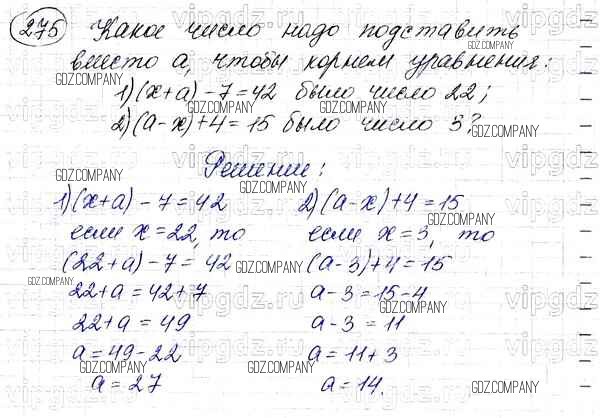 275 Какое число надо подставить
вместо а, чтобы корнем уравнения:
1) (x+a)-7=42 было число 22;
2) (a-x)+4=15 было число 3?
Решение:
1) (x+a)-7=42
если x=22, то
(22+a)-7=42
22+a=42+7
22+a=49
a=49-22
a=27
2) (a-x)+4=15
если x=3, то
(a-3)+4=15
a-3=15-4
a-3=11
a=11+3
a=14.
GDZ.COMPANY
vipgdz.ru